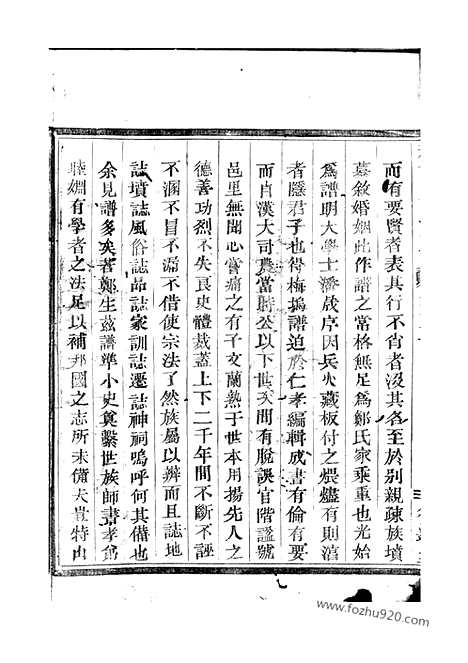 而有要賢者表其行不肖者沒其名至於別親疎族墳
墓敘婚姻此作譜之當格無足爲鄭氏家乘重也光始
爲譜明大學士潘晟序因兵火藏板付之煨燼有則淯
者隱君子也得梅塢譜迫於仁孝編輯成書有倫有要
而自漢大司農當時公以下世次間有脫誤官階謚號
邑里無聞心嘗痛之有子文蘭熱于世本用揚先人之
德善功烈不失良史體裁蓋上下二千年間不斷不誣
不溷不冒不漏不借使宗法了然族屬以辨而且誌地
誌墳誌風俗誌節誌家訓誌遷誌神祠嗚呼何其備也
余見譜多矣若鄭生茲譜準小史奠繫世族師書孝
睦婣有學者之法足以補邦國之志所未備夫豈特由
www.fozhu920.com